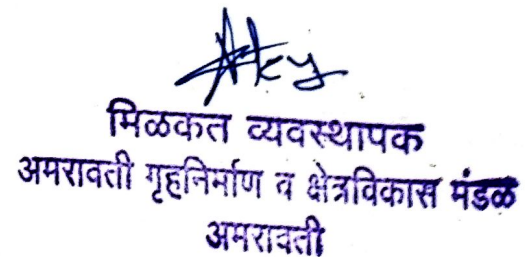 मिळकत व्यवस्थापक
अमरावती गृहनिर्माण व क्षेत्रविकास मंडळ
अमरावती